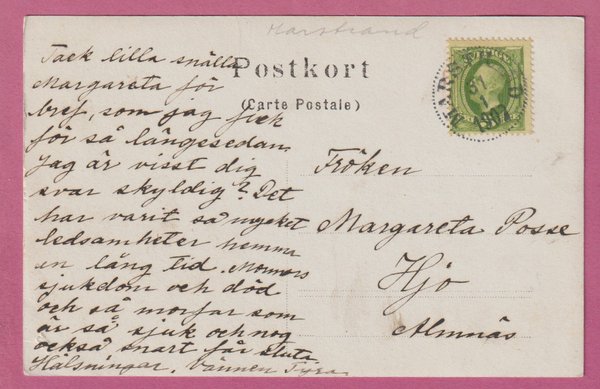 Marstrand
Postkort
(Carte Postale)
Tack lilla snälla
Margareta för
bref, som jag fick
för så längesedan
Jag är visst dig
svar skyldig? Det
har varit så mycket
ledsamheter hemma
en lång tid. Mormors
sjukdom och död
och så morfar som
är så sjuk och nog
också snart får sluta
Hälsningar. Vännen Tyra
Fröken
Margareta Posse
Hjo
Almnäs